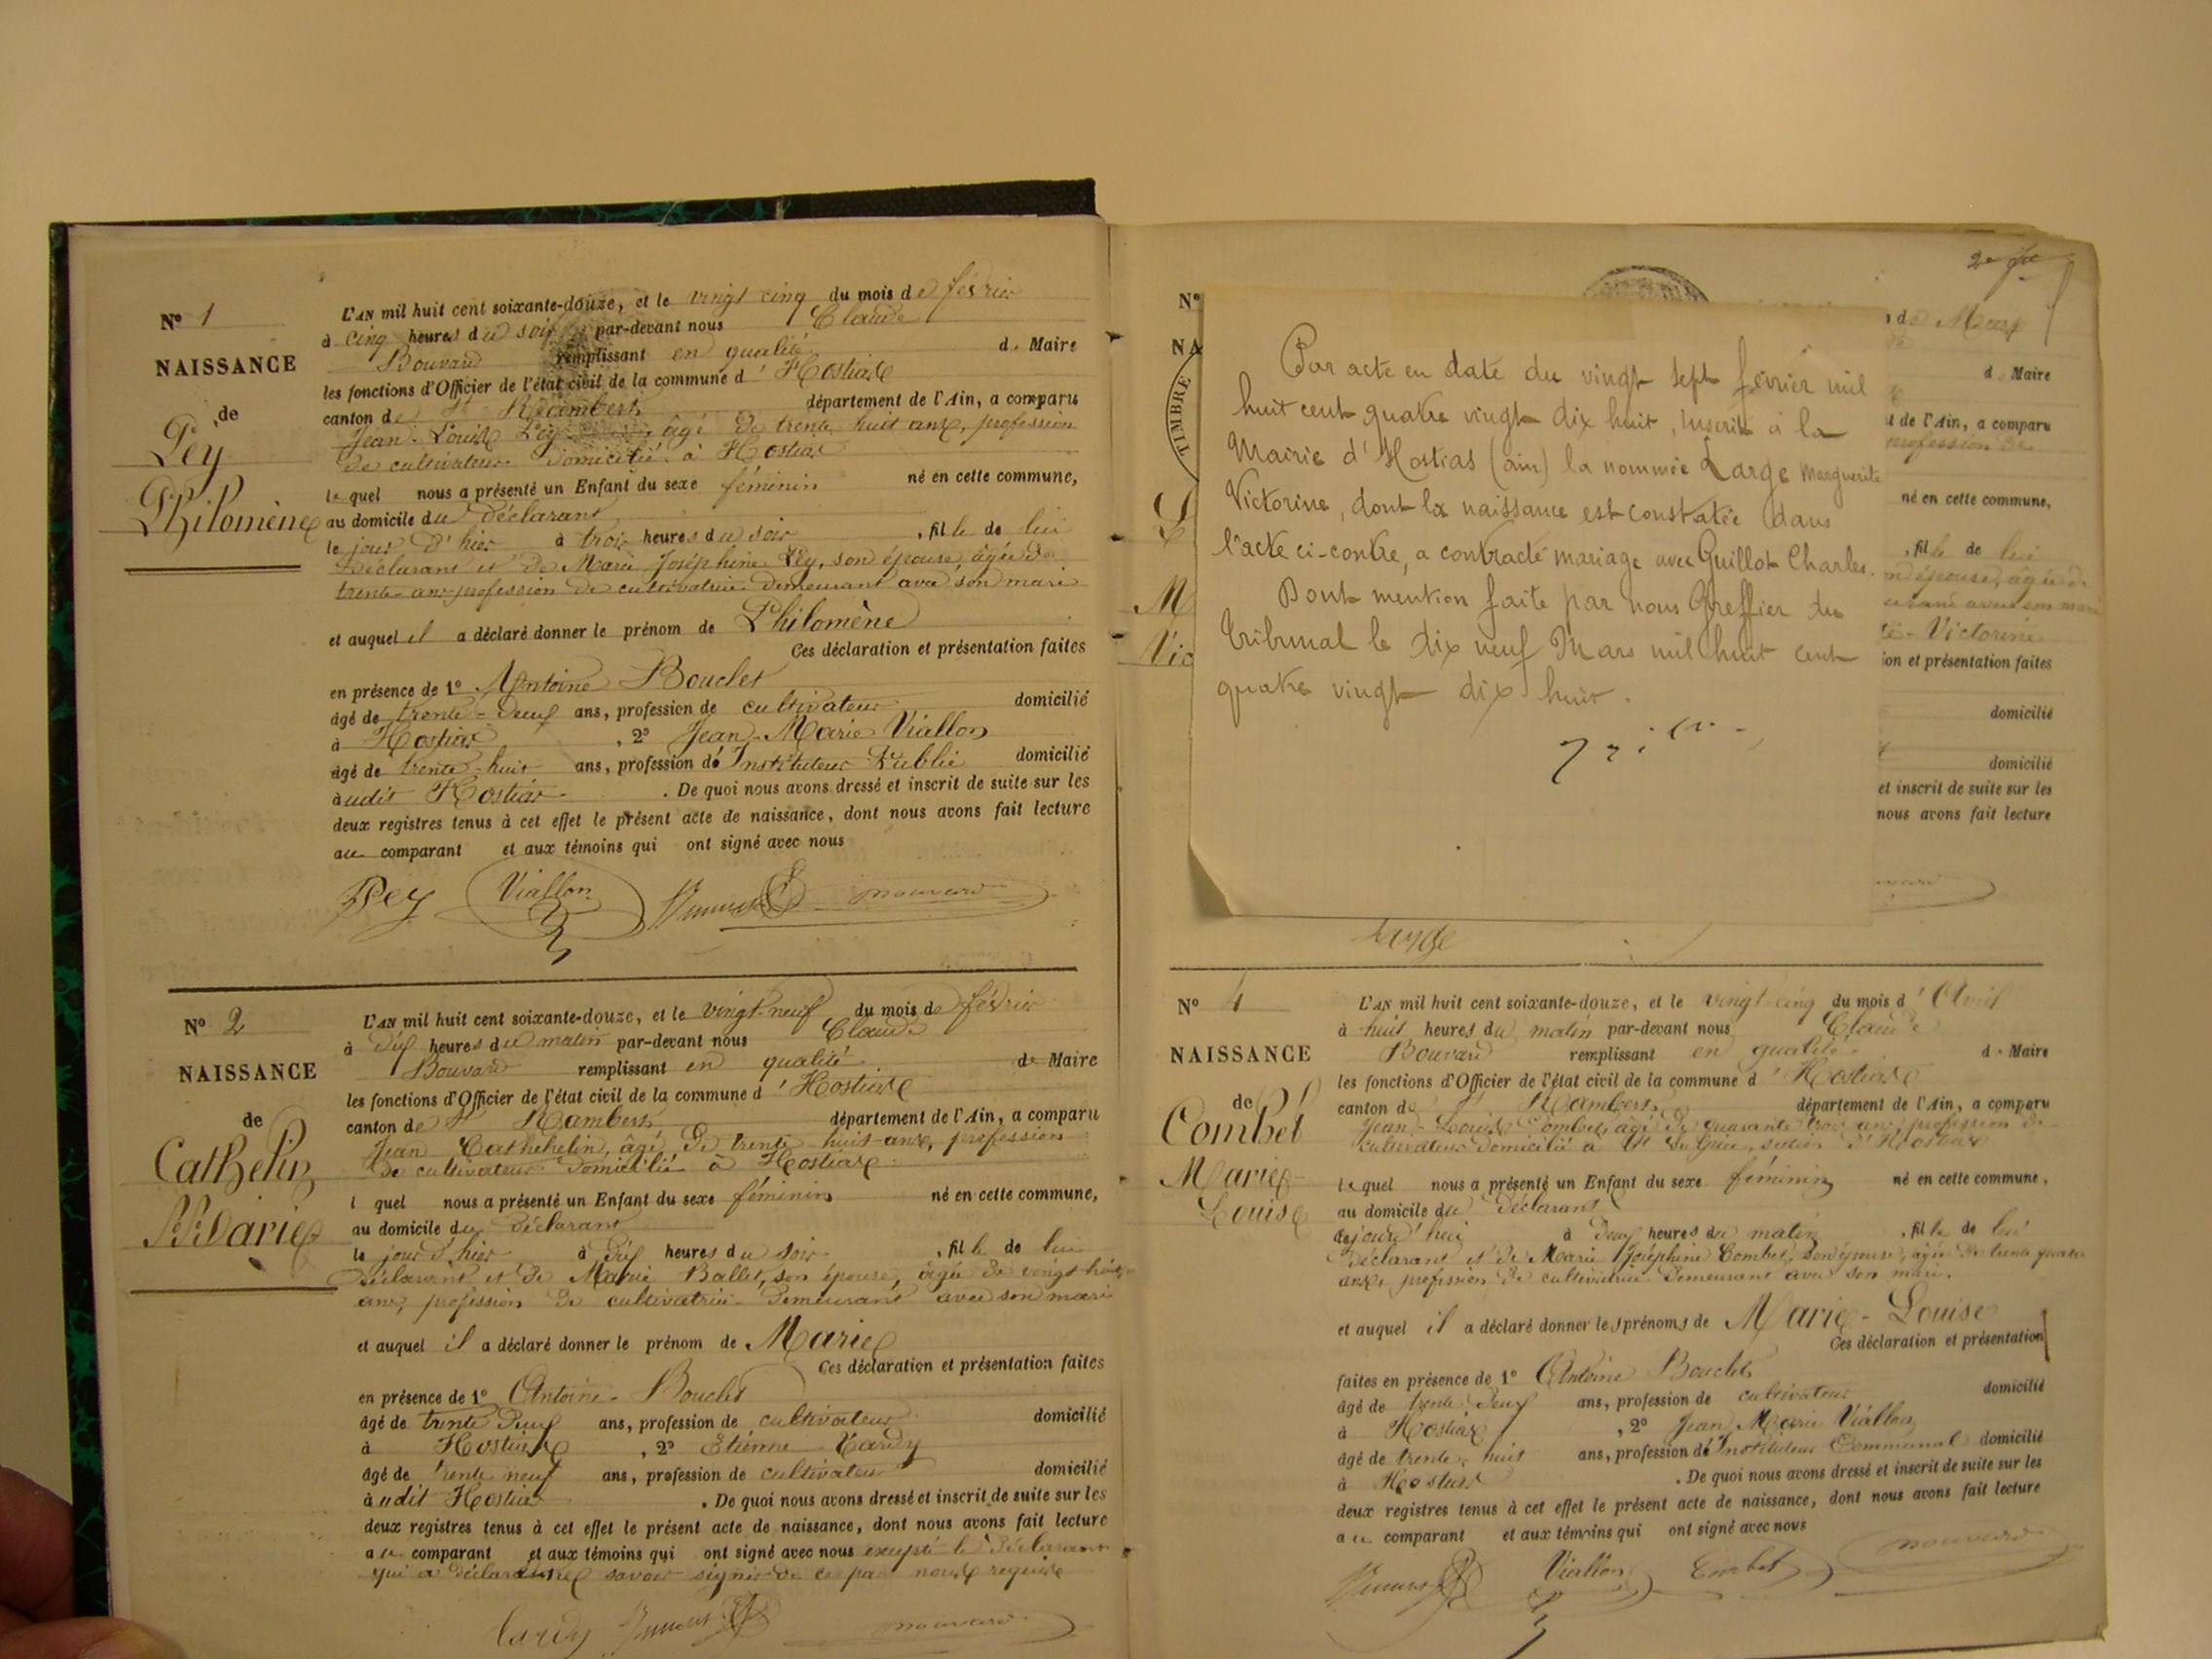 N° 1
NAISSANCE
de
Pey
Philomène
L'AN mil huit cent soixante-douze, et le vingt cinq du mois de février
à cinq heures du soir par-devant nous Claude
Bouvard remplissant en qualité de Maire
les fonctions d'Officier de l'état civil de la commune d'Hostiaz
canton de St Rambert département de l'Ain, a comparu
Jean-Louis Pey âgé de trente huit ans, profession
de cultivateur domicilié à Hostiaz
lequel nous a présenté un Enfant du sexe féminin né en cette commune,
au domicile du déclarant
le jour d'hier à trois heures du soir, fille de lui
déclarant et de Marie Joséphine Pey, son épouse, âgée de
trente ans profession de cultivatrice demeurant avec son mari
et auquel il a déclaré donner le prénom de Philomène
Ces déclaration et présentation faites
en présence de 1° Antoine Bouclet
âgé de trente-deux ans, profession de cultivateur domicilié
à Hostiaz, 2° Jean-Marie Viallon
âgé de trente-huit ans, profession d'Instituteur Public domicilié
audit Hostiaz. De quoi nous avons dressé et inscrit de suite sur les
deux registres tenus à cet effet le présent acte de naissance, dont nous avons fait lecture
au comparant et aux témoins qui ont signé avec nous
Pey Viallon
N° 2
NAISSANCE
de
Cathelin
Marie
L'AN mil huit cent soixante-douze, et le vingt-neuf du mois de février
à dix heures du matin par-devant nous Claude
Bouvard remplissant en qualité de Maire
les fonctions d'Officier de l'état civil de la commune d'Hostiaz
canton de St Rambert département de l'Ain, a comparu
Jean Cathehelin, âgé de trente-huit ans, profession
de cultivateur domicilié à Hostiaz
l quel nous a présenté un Enfant du sexe féminin né en cette commune,
au domicile du déclarant
le jour d'hier à dix heures du soir, fille de lui
déclarant et de Marie Ballet, son épouse, âgée de vingt huit
ans, profession de cultivatrice demeurant avec son mari
et auquel il a déclaré donner le prénom de Marie
Ces déclaration et présentation faites
en présence de 1° Antoine Bouclet
âgé de trente deux ans, profession de cultivateur domicilié
à Hostiaz, 2° Etienne Tardy
âgé de trente neuf ans, profession de cultivateur domicilié
audit Hostiaz. De quoi nous avons dressé et inscrit de suite sur les
deux registres tenus à cet effet le présent acte de naissance, dont nous avons fait lecture
au comparant et aux témoins qui ont signé avec nous excepté le déclarant
qui a déclaré savoir signer de ce par nous requis
Tardy
2e
N°
NA
TIMBRE
M
Vic
Par acte en date du vingt sept février mil
huit cent quatre vingt dix huit, inscrit à la
Mairie d'Hostias (ain) la nommée Large Marguerite
Victorine, dont la naissance est constatée dans
l'acte ci-contre, a contracté mariage avec Guillot Charles.
Dont mention faite par nous Greffier du
Tribunal le dix neuf Mars mil huit cent
quatre vingt dix huit.
de Mars
de Maire
t de l'Ain, a comparu
profession de
né en cette commune,
, fille de lui
n épouse, âgée de
avec son mari
te-Victorine
ion et présentation faites
domicilié
domicilié
et inscrit de suite sur les
nous avons fait lecture
Large
N° 4
NAISSANCE
de
Combet
Marie-
Louise
L'AN mil huit cent soixante-douze, et le vingt-cinq du mois d'Avril
à huit heures du matin par-devant nous Claude
Bouvard remplissant en qualité de Maire
les fonctions d'Officier de l'état civil de la commune d'Hostiaz
canton de St Rambert département de l'Ain, a comparu
Jean-Louis Combet, âgé de quarante trois ans, profession de
cultivateur domicilié à section d'Hostiaz
lequel nous a présenté un Enfant du sexe féminin né en cette commune,
au domicile du déclarant
cejourd'hui à deux heures du matin, fille de lui
déclarant et de Marie Joséphine Combet, son épouse, âgée de trente quatre
ans, profession de cultivatrice demeurant avec son mari.
et auquel il a déclaré donner les prénoms de Marie-Louise
Ces déclaration et présentation
faites en présence de 1° Antoine Bouclet
âgé de trente deux ans, profession de cultivateur domicilié
à Hostiaz, 2° Jean Marie Viallon
âgé de trente-huit ans, profession d'Instituteur Communal domicilié
à Hostiaz. De quoi nous avons dressé et inscrit de suite sur les
deux registres tenus à cet effet le présent acte de naissance, dont nous avons fait lecture
au comparant et aux témoins qui ont signé avec nous
Viallon Combet